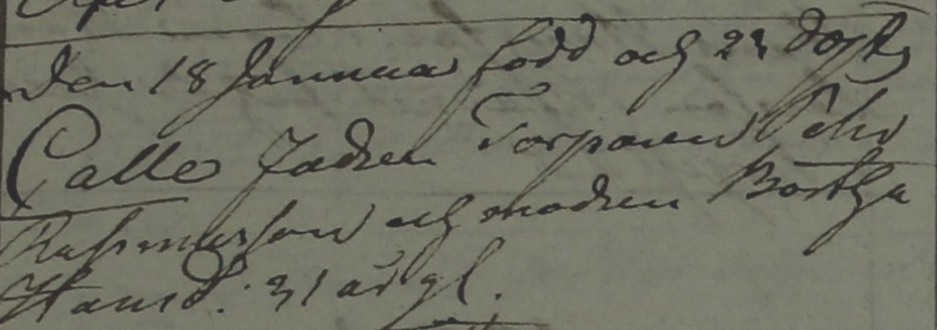 den 18 Januari född och 23 döpt
Calle fadren Torparen Pehr
Rasmusson och modren Boertha
Hansd. 31 år gl.